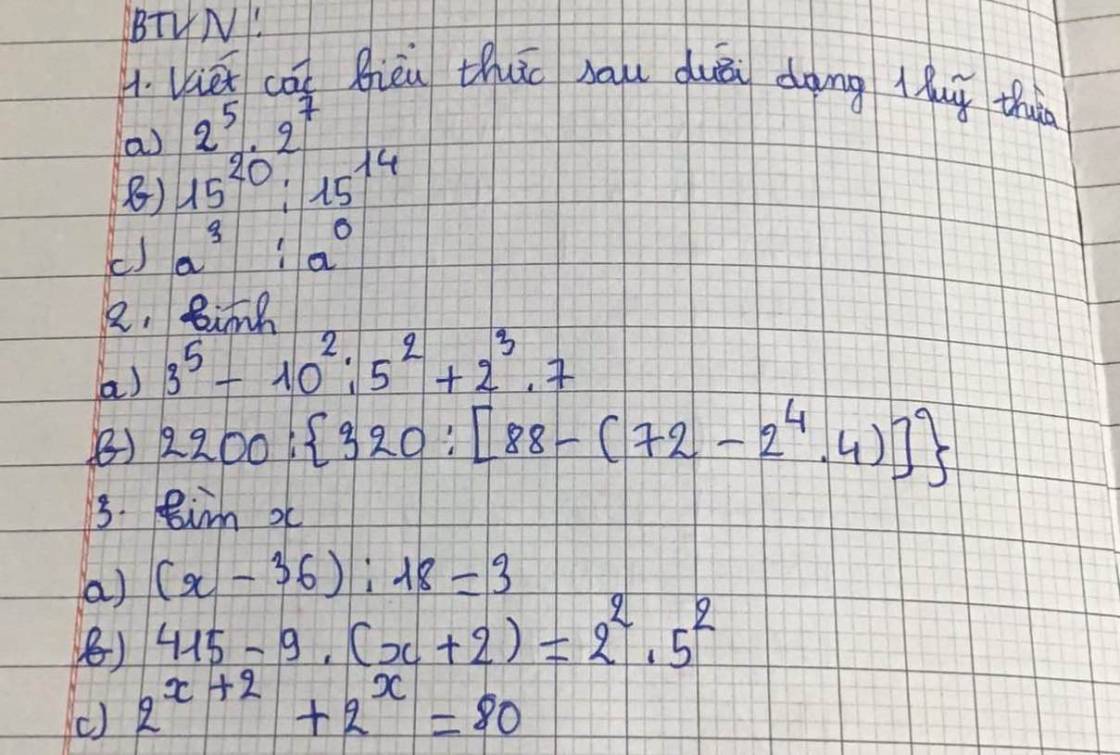 BTVN!
1. Viết các biểu thức sau dưới dạng 1 luỹ thừa
a) 2⁵ . 2⁷
b) 15²⁰ : 15¹⁴
c) a³ : a⁰
2. tính
a) 3⁵ - 10² : 5² + 2³ . 7
b) 2200 : {320 : [88 - (72 - 2⁴ . 4)]}
3. tìm x
a) (x - 36) : 18 = 3
b) 415 - 9 . (x + 2) = 2² . 5²
c) 2ˣ⁺² + 2ˣ = 80